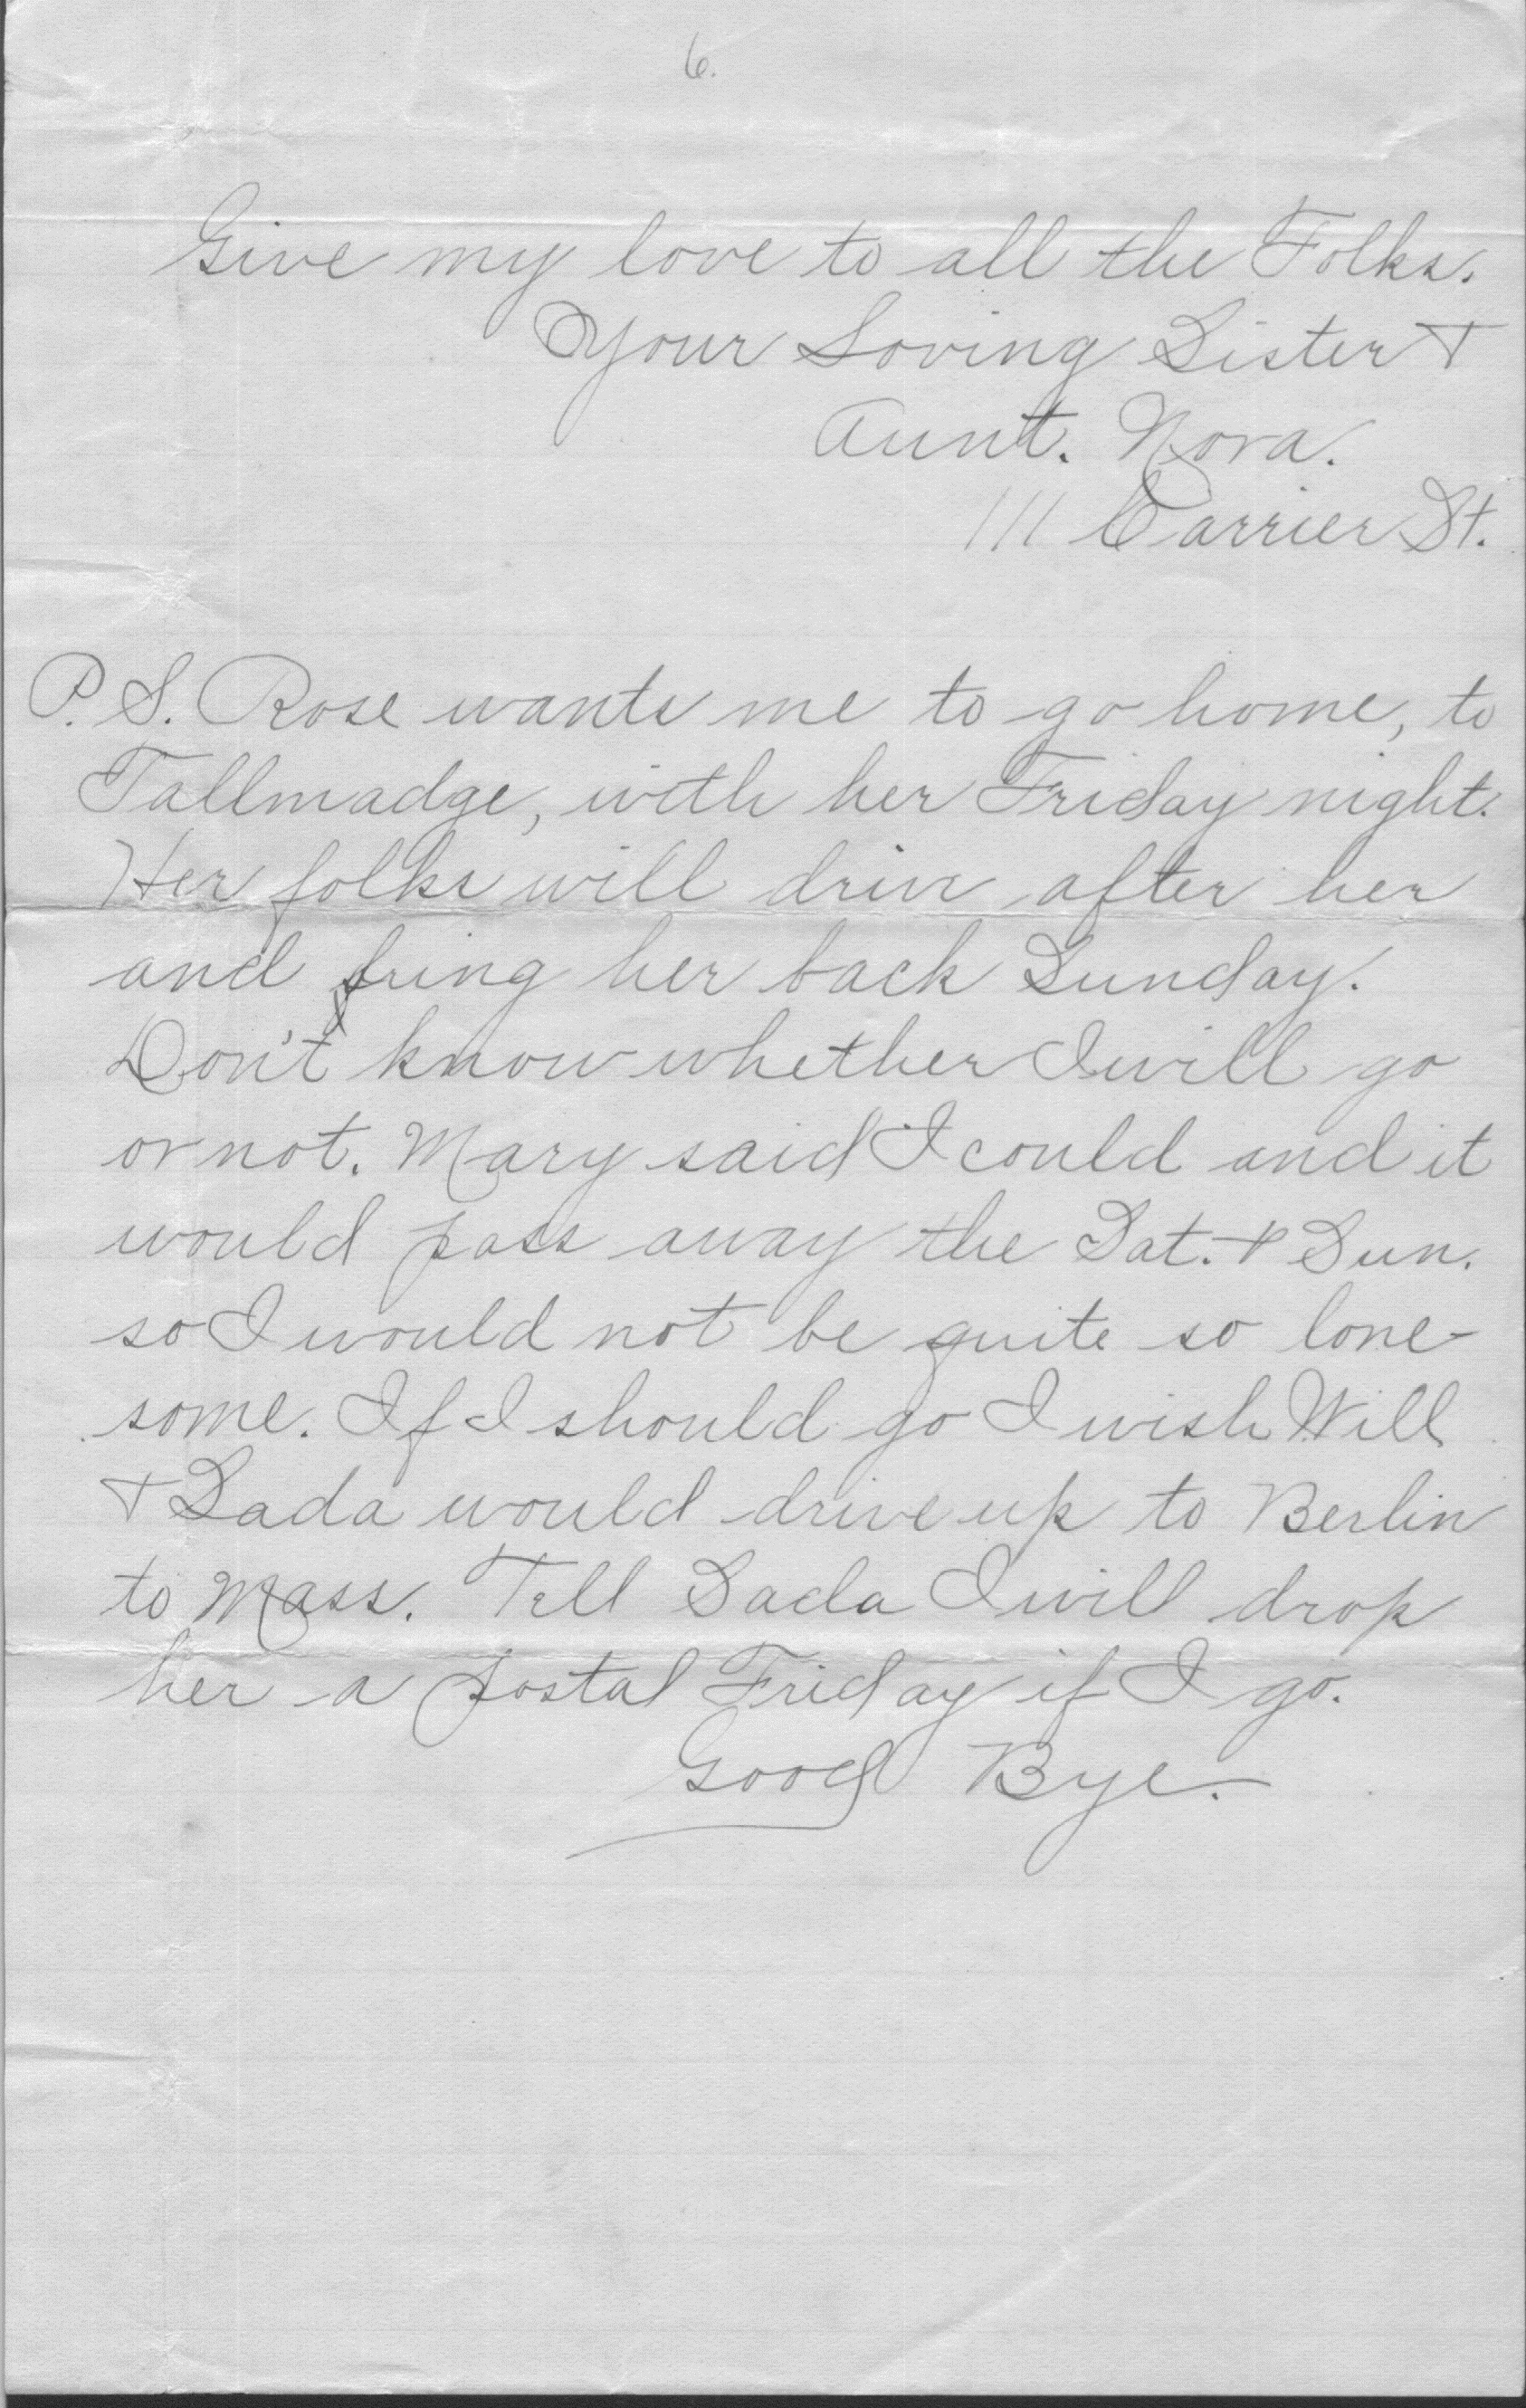 6.
Give my love to all the Folks.
Your Loving Sister &
Aunt. Nora.
111 Carrier St.
P.S. Rose wants me to go home, to
Tallmadge, with her Friday night.
Her folks will drive after her
and bring her back Sunday.
Don't know whether I will go
or not. Mary said I could and it
would pass away the Sat. & Sun.
so I would not be quite so lone-
some. If I should go I wish Will
& Sada would drive up to Berlin
to Mass. Tell Sada I will drop
her a postal Friday if I go.
Good Bye.